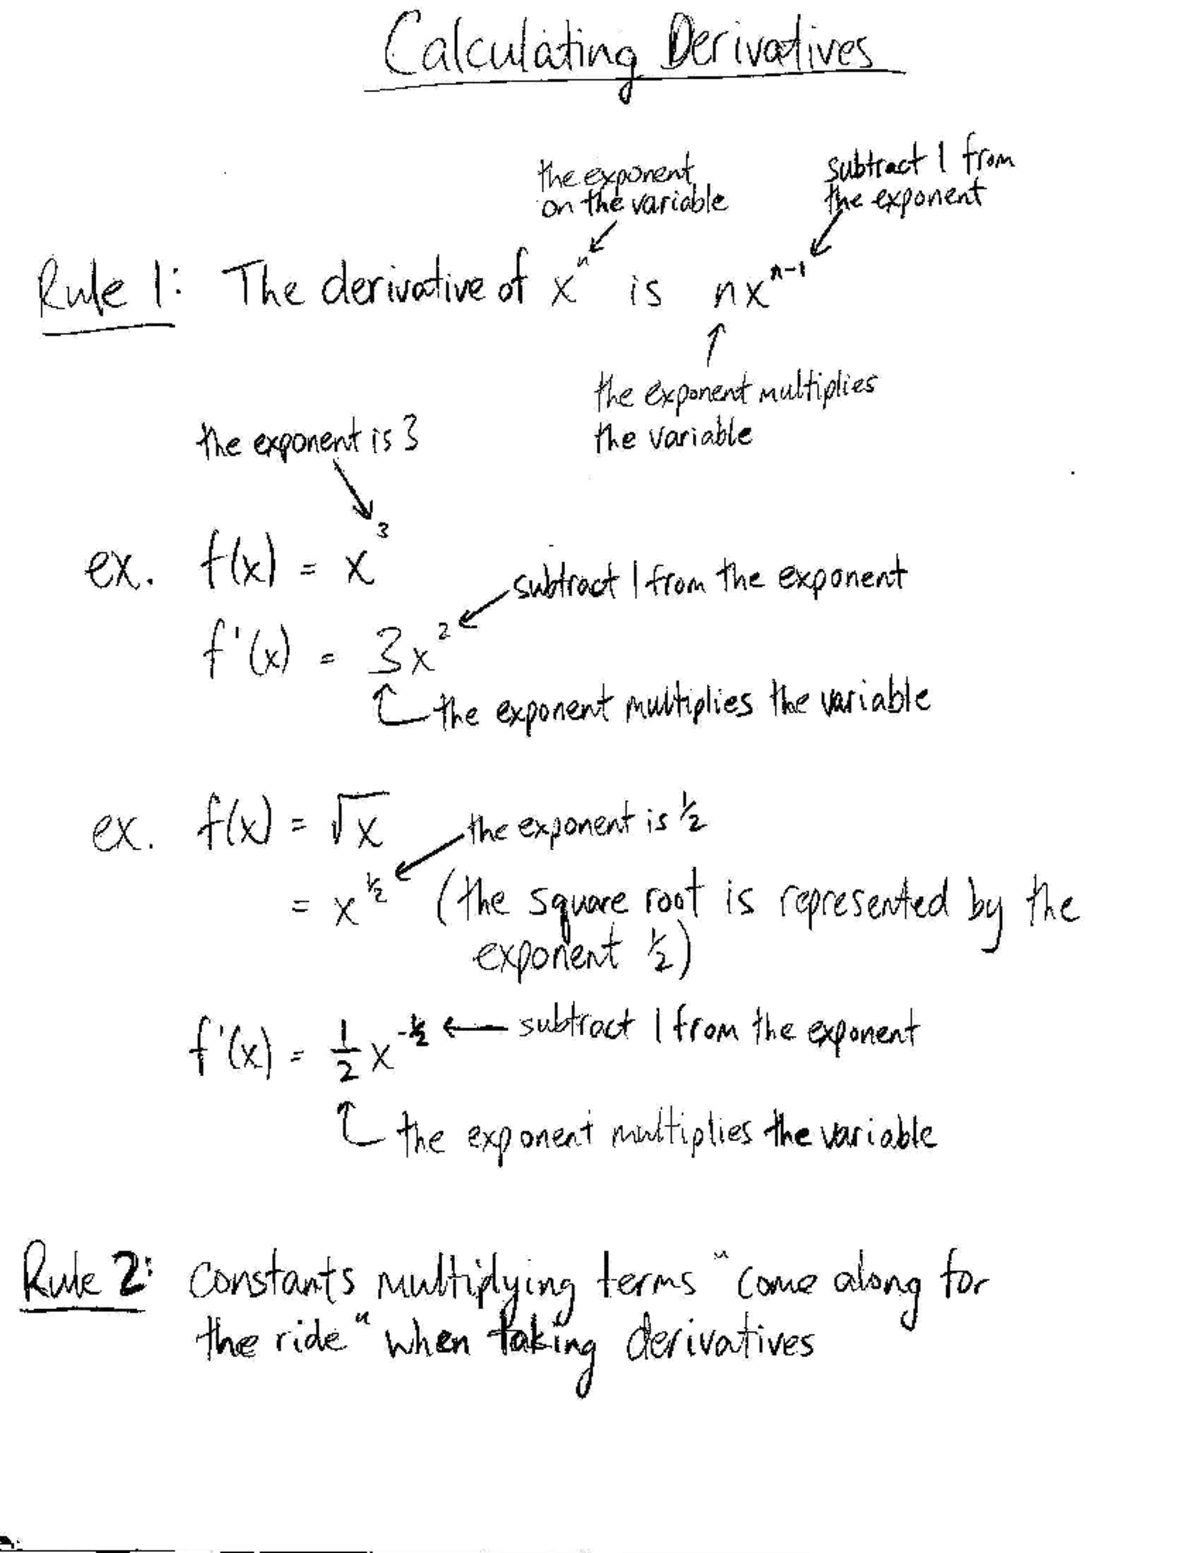 Calculating Derivatives
the exponent
on the variable
subtract 1 from
the exponent
Rule 1: The derivative of xⁿ is nxⁿ⁻¹
the exponent multiplies
the variable
the exponent is 3
ex. f(x) = x³
subtract 1 from the exponent
f'(x) = 3x²
the exponent multiplies the variable
ex. f(x) = √x
the exponent is ½
= x^½ (the square root is represented by the
exponent ½)
f'(x) = 1/2 x^-½ subtract 1 from the exponent
the exponent multiplies the variable
Rule 2: Constants multiplying terms "come along for
the ride" when taking derivatives